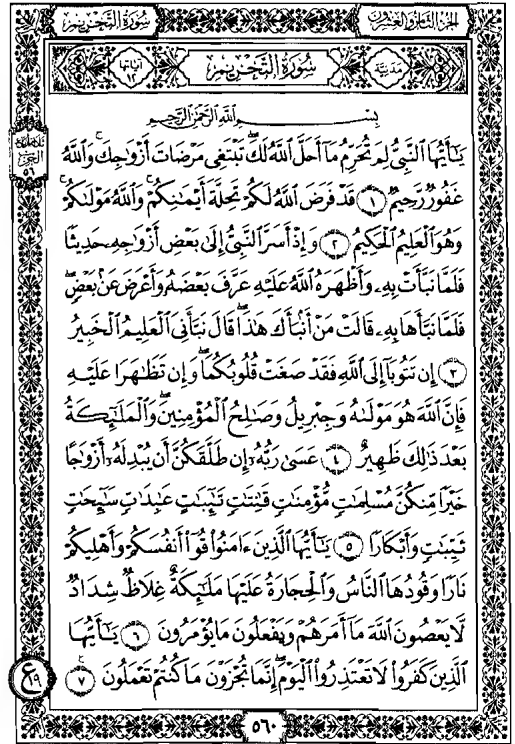 الجزء الثامن والعشرون
سُورَةُ التَّحْرِيمِ
مَدَنِيَّة
سُورَةُ التَّحْرِيمِ
آيَاتُهَا ١٢
بِسْمِ اللَّهِ الرَّحْمَٰنِ الرَّحِيمِ
يَٰٓأَيُّهَا ٱلنَّبِيُّ لِمَ تُحَرِّمُ مَآ أَحَلَّ ٱللَّهُ لَكَۖ تَبْتَغِي مَرْضَاتَ أَزْوَٰجِكَۚ وَٱللَّهُ
غَفُورٌ رَّحِيمٌ ١ قَدْ فَرَضَ ٱللَّهُ لَكُمْ تَحِلَّةَ أَيْمَٰنِكُمْۚ وَٱللَّهُ مَوْلَىٰكُمْۖ
وَهُوَ ٱلْعَلِيمُ ٱلْحَكِيمُ ٢ وَإِذْ أَسَرَّ ٱلنَّبِيُّ إِلَىٰ بَعْضِ أَزْوَٰجِهِۦ حَدِيثًا
فَلَمَّا نَبَّأَتْ بِهِۦ وَأَظْهَرَهُ ٱللَّهُ عَلَيْهِ عَرَّفَ بَعْضَهُۥ وَأَعْرَضَ عَنۢ بَعْضٍۖ
فَلَمَّا نَبَّأَهَا بِهِۦ قَالَتْ مَنْ أَنۢبَأَكَ هَٰذَاۖ قَالَ نَبَّأَنِيَ ٱلْعَلِيمُ ٱلْخَبِيرُ
٣ إِن تَتُوبَآ إِلَى ٱللَّهِ فَقَدْ صَغَتْ قُلُوبُكُمَاۖ وَإِن تَظَٰهَرَا عَلَيْهِ
فَإِنَّ ٱللَّهَ هُوَ مَوْلَىٰهُ وَجِبْرِيلُ وَصَٰلِحُ ٱلْمُؤْمِنِينَۖ وَٱلْمَلَٰٓئِكَةُ
بَعْدَ ذَٰلِكَ ظَهِيرٌ ٤ عَسَىٰ رَبُّهُۥٓ إِن طَلَّقَكُنَّ أَن يُبْدِلَهُۥٓ أَزْوَٰجًا
خَيْرًا مِّنكُنَّ مُسْلِمَٰتٍ مُّؤْمِنَٰتٍ قَٰنِتَٰتٍ تَٰٓئِبَٰتٍ عَٰبِدَٰتٍ سَٰٓئِحَٰتٍ
ثَيِّبَٰتٍ وَأَبْكَارًا ٥ يَٰٓأَيُّهَا ٱلَّذِينَ ءَامَنُوا۟ قُوٓا۟ أَنفُسَكُمْ وَأَهْلِيكُمْ
نَارًا وَقُودُهَا ٱلنَّاسُ وَٱلْحِجَارَةُ عَلَيْهَا مَلَٰٓئِكَةٌ غِلَاظٌ شِدَادٌ
لَّا يَعْصُونَ ٱللَّهَ مَآ أَمَرَهُمْ وَيَفْعَلُونَ مَا يُؤْمَرُونَ ٦ يَٰٓأَيُّهَا
ٱلَّذِينَ كَفَرُوا۟ لَا تَعْتَذِرُوا۟ ٱلْيَوْمَۖ إِنَّمَا تُجْزَوْنَ مَا كُنتُمْ تَعْمَلُونَ ٧
ع
١٩
٥٦٠